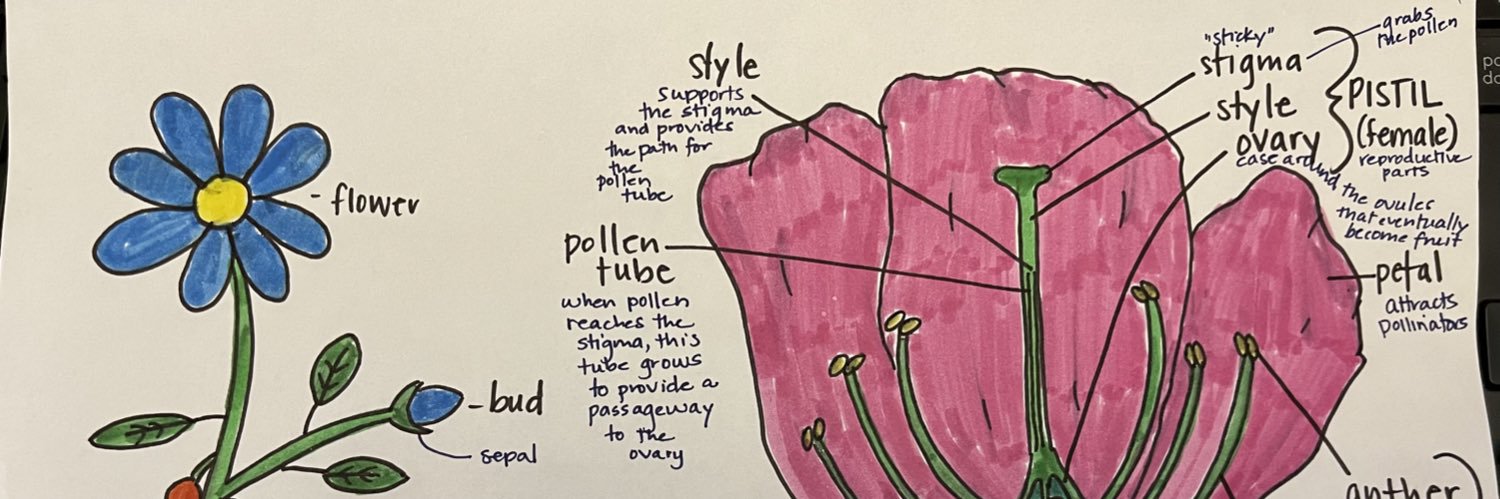 - flower
- bud
sepal
style
supports
the stigma
and provides
the path for
the
pollen
tube
pollen
tube
when pollen
reaches the
stigma, this
tube grows
to provide a
passageway
to the
ovary
"sticky"
stigma
grabs
the pollen
style
ovary
case around the ovules
that eventually
become fruit
PISTIL
(female)
reproductive
parts
petal
attracts
pollinators
anther